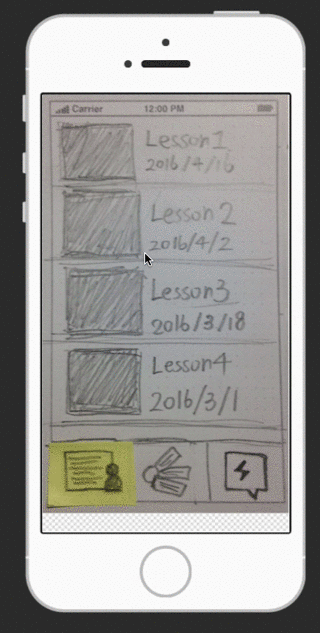 Carrier 12:00 PM
Lesson1
2016/4/16
Lesson 2
2016/4/2
Lesson3
2016/3/18
Lesson4
2016/3/1